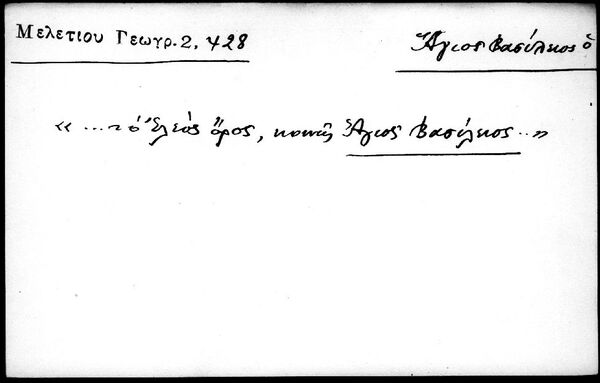 Μελετίου Γεωγρ. 2, 428
Ἅγιος Βασίλειος ὁ
«...τὸ Ἐλεὸς ὄρος, κοινῶς Ἅγιος Βασίλειος...»